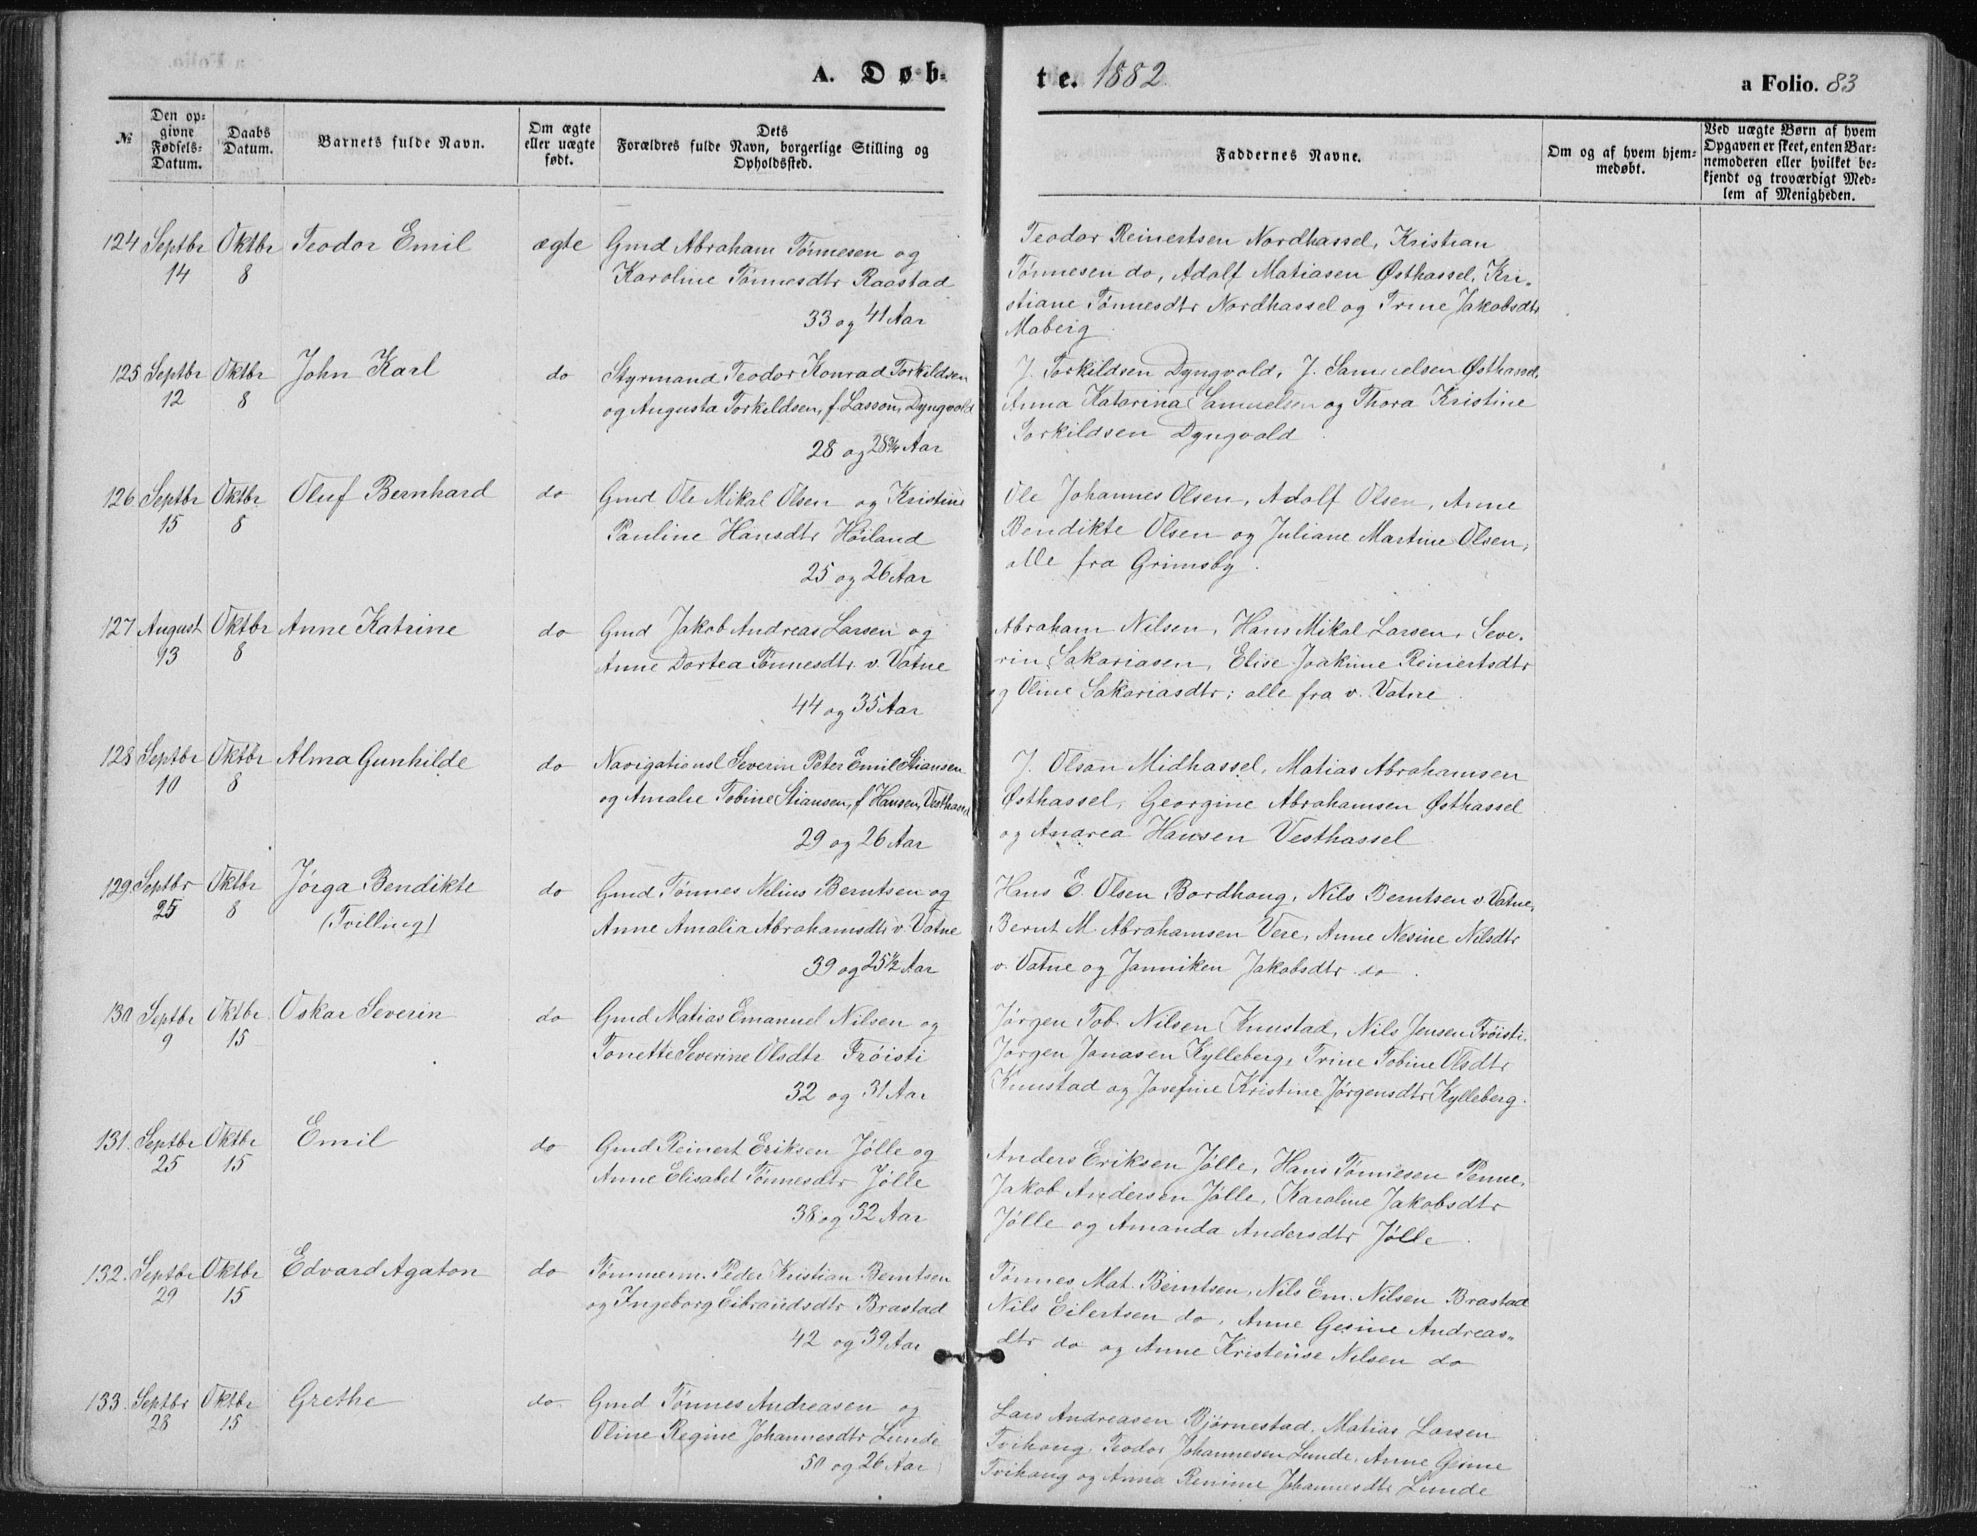 A. Døb-
te. 1882
a Folio. 83
№
Den op-
givne
Fødsels-
Datum.
Daabs
Datum.
Barnets fulde Navn.
Om ægte
eller uægte
født.
Dets
Forældres fulde Navn, borgerlige Stilling og
Opholdssted.
Faddernes Navne.
Om og af hvem hjem-
medøbt.
Ved uægte Børn af hvem
Opgaven er skeet, enten Bar-
nemoderen eller hvilket be-
kjendt og troværdigt Med-
lem af Menigheden.
124 Septbr Oktbr Teodor Emil ægte Gmd Abraham Tønnesen og
14 8 Karoline Tønnesdtr Raastad
33 og 41 Aar
Teodor Reinertsen Nordhassel, Kristian
Tønnesen do, Adolf Matiasen Østhassel, Kri-
stiane Tønnesdtr Nordhassel og Trine Jakobsdtr
Maberg
125 Septbr Oktbr John Karl do Styrmand Teodor Konrad Torkildsen
12 8 og Augusta Torkildsen, f. Lassen, Dyngvold
28 og 28¾ Aar
J. Torkildsen Dyngvold, J. Samuelsen Østhassel,
Anna Katarina Samuelsen og Thora Kristine
Torkildsen Dyngvold.
126 Septbr Oktbr Oluf Bernhard do Gmd Ole Mikal Olsen og Kristine
15 8 Pauline Hansdtr Høiland
25 og 26 Aar
Ole Johannes Olsen, Adolf Olsen, Anne
Bendikte Olsen og Juliane Martine Olsen,
alle fra Grimsby.
127 August Oktbr Anne Katrine do Gmd Jakob Andreas Larsen og
13 8 Anne Dortea Tønnesdtr. v. Vatne
44 og 35 Aar
Abraham Nilsen, Hans Mikal Larsen, Seve-
rin Sakariasen, Elise Joakime Reinertsdtr
og Oline Sakariasdtr; alle fra v. Vatne.
128 Septbr Oktbr Alma Gunhilde do Navigationsl Severin Peter Emil Stiansen
10 8 og Amalie Tobine Stiansen, f Hansen, Vesthassel
29 og 26 Aar
J. Olsen Midhassel, Matias Abrahamsen
Østhassel, Georgine Abrahamsen Østhassel
og Andrea Hansen Vesthassel
129 Septbr Oktbr Jørga Bendikte do Gmd Tønnes Nelius Berntsen og
25 8 (Tvilling) Anne Amalia Abrahamsdtr v. Vatne
39 og 25½ Aar
Hans E. Olsen Bordhaug, Nils Berntsen v. Vatne,
Bernt M. Abrahamsen Vere, Anne Nesine Nilsdtr
v. Vatne og Janniken Jakobsdtr do.
130 Septbr Oktbr. Oskar Severin do Gmd Matias Emanuel Nilsen og
9 15 Tonette Severine Olsdtr Frøisti
32 og 31 Aar
Jørgen Tob. Nilsen Knustad, Nils Jensen Frøisti,
Jørgen Jonasen Kylleberg, Trine Tobine Olsdtr
Knustad og Josefine Kristine Jørgensdtr Kylleberg.
131. Septbr Oktbr Emil do Gmd Reinert Eriksen Jølle og
25 15 Anne Elisabet Tønnesdtr Jølle
38 og 32 Aar
Anders Eriksen Jølle, Hans Tønnesen Penne,
Jakob Andersen Jølle, Karoline Jakobsdtr
Jølle og Amanda Andersdtr Jølle.
132. Septbr Oktbr Edvard Agaton do Tømmerm. Peder Kristian Berntsen
29 15 og Ingeborg Eibrandsdtr Brastad
42 og 39 Aar
Tønnes Mat. Berntsen, Nils Em. Nilsen Brastad
Nils Eilertsen do, Anne Gesine Andreas-
dtr do og Anne Kristense Nilsen do
133. Septbr Oktbr Grethe do Gmd Tønnes Andreasen og
28 15 Oline Regine Johannesdtr Lunde
50 og 26 Aar
Lars Andreasen Bjørnestad, Matias Larsen
Tvihaug, Teodor Johannesen Lunde, Anne Gesine
Tvihaug og Anna Johannesdtr Lunde